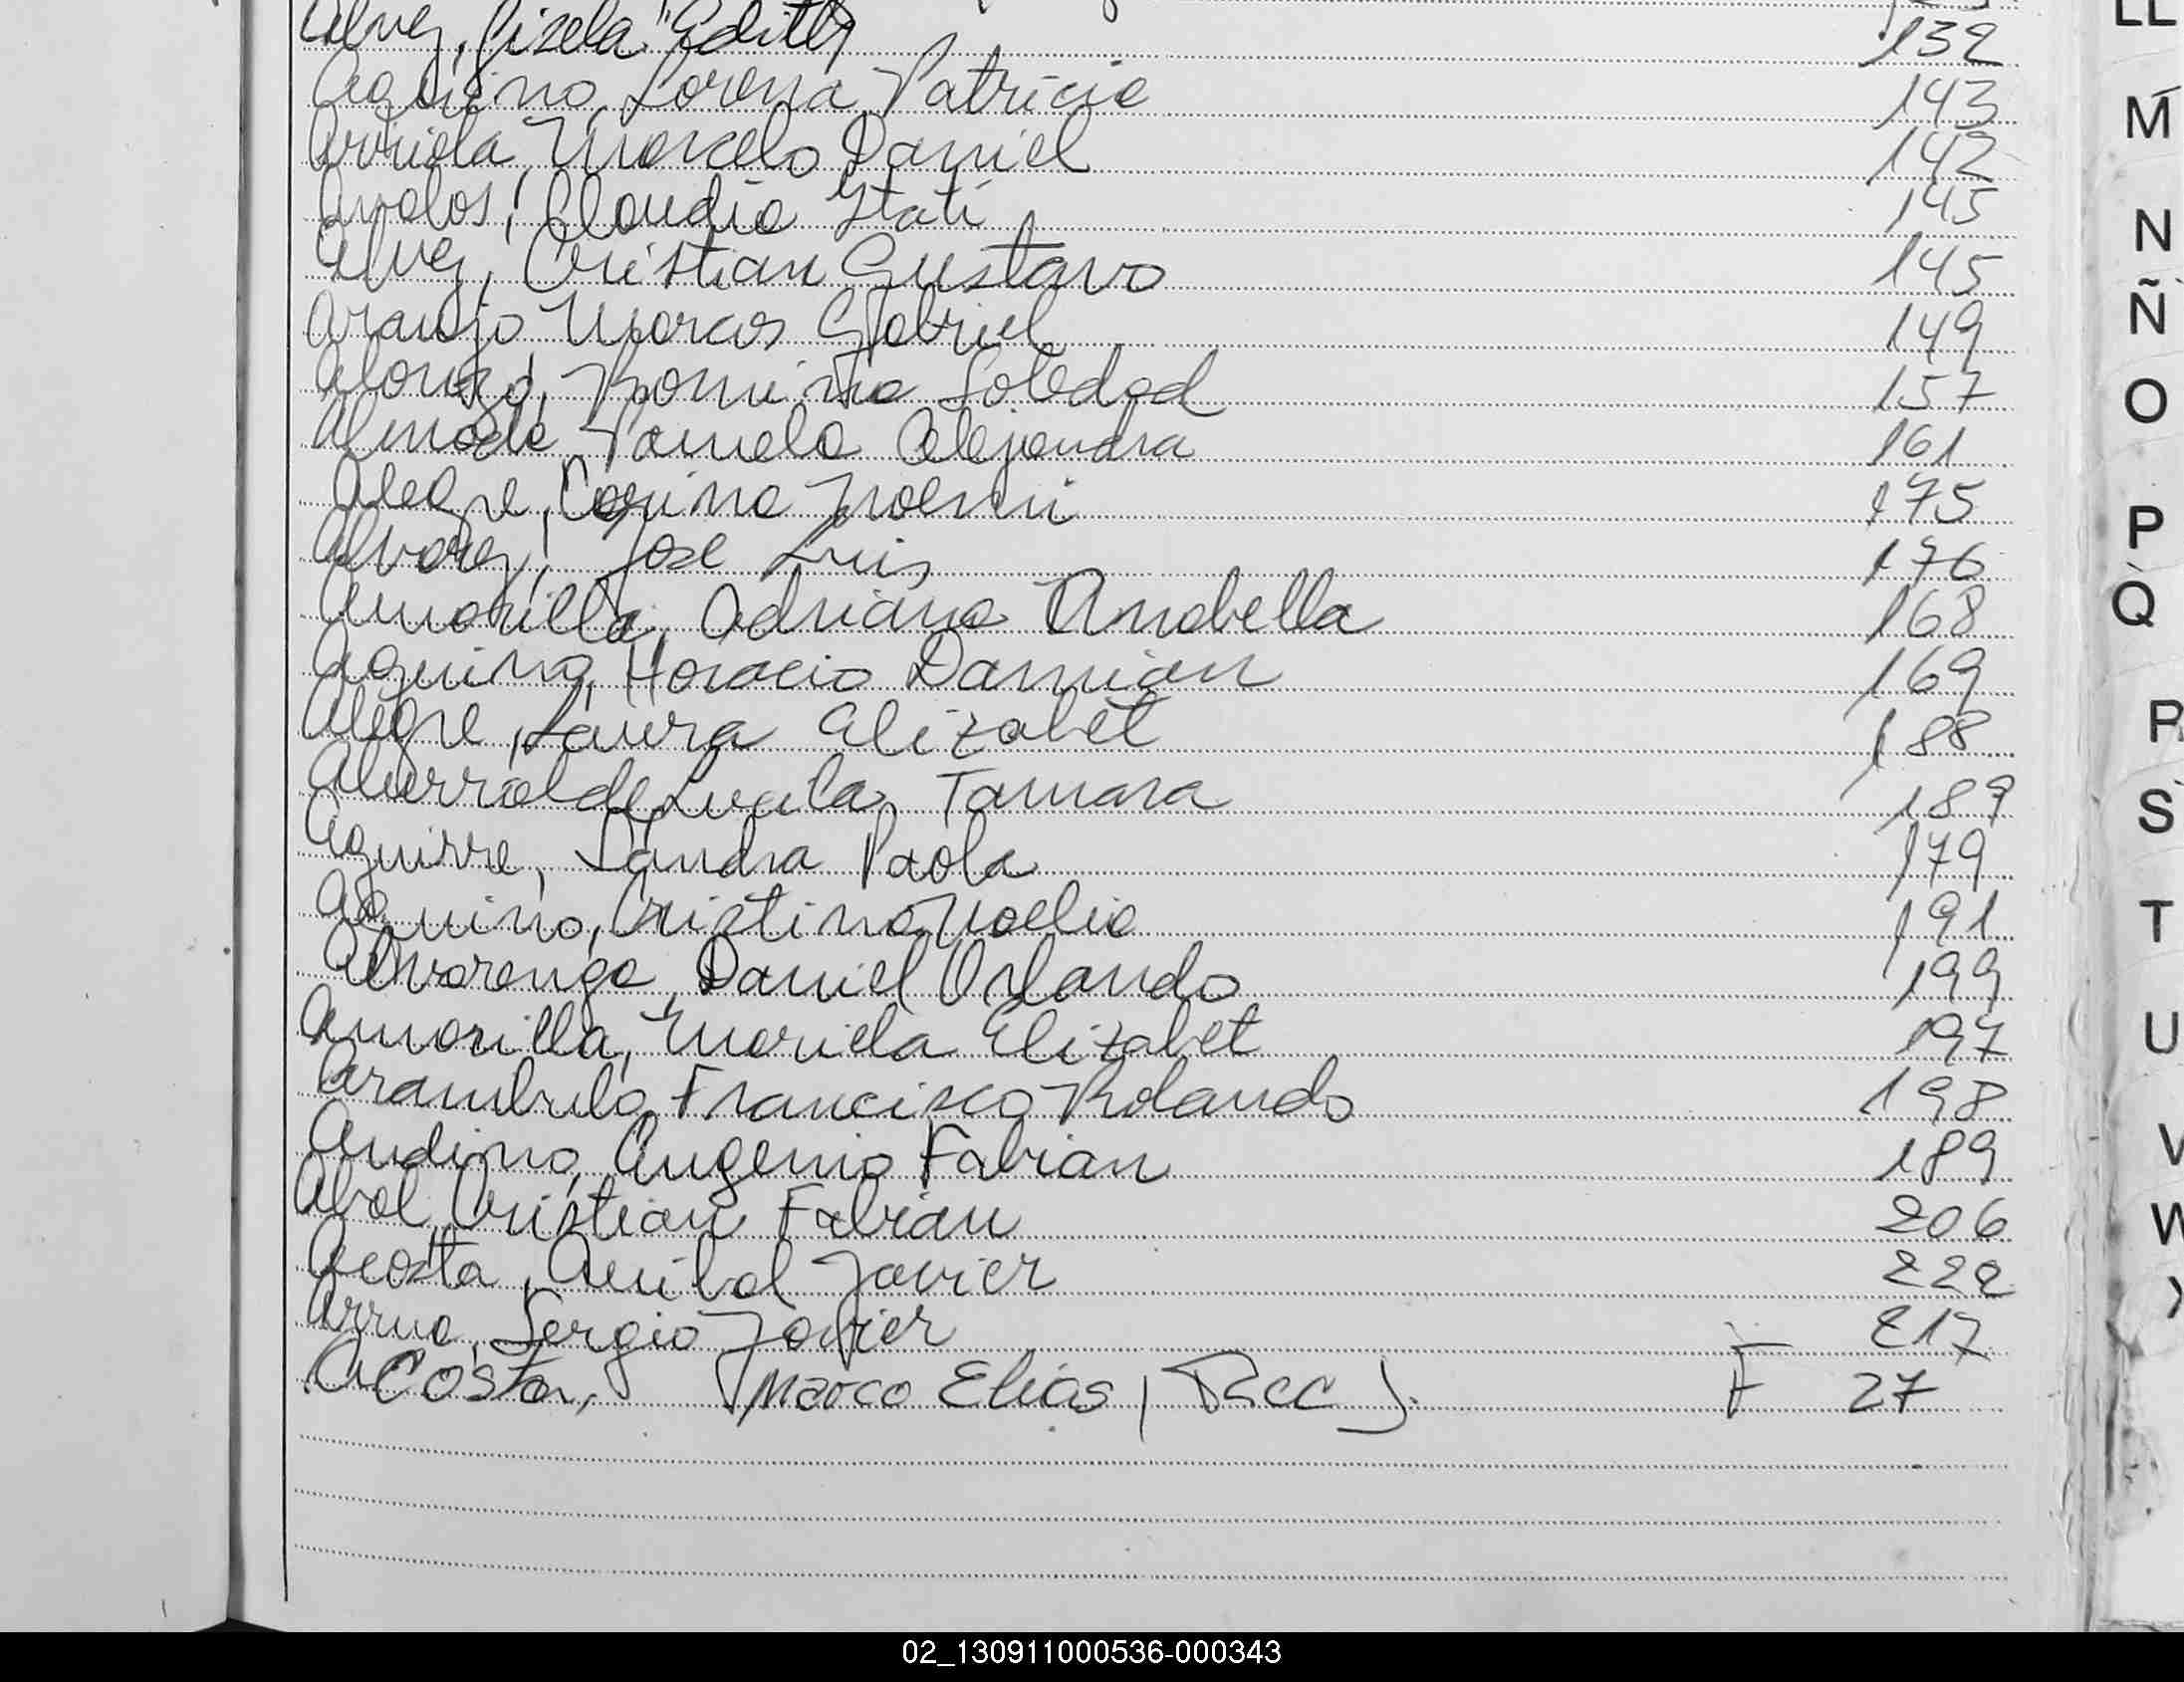 Alvez, Gisela Edith 132
Aquino, Lorena Patricia 143
Arriola, Marcelo Daniel 142
Avalos, Claudia Itatí 145
Alvez, Cristian Gustavo 145
Araujo Marcos Gabriel 149
Alonzo, Romina Soledad 157
Almada Pamela Alejandra 161
Alegre, Corina Noemi 175
Alvarez, Jose Luis 176
Amarilla, Adriana Anabella 168
Aquino, Horacio Damian 169
Alegre, Laura Elizabet 188
Alurralde Lucila Tamara 189
Aguirre, Sandra Paola 179
Aquino, Cristina Noelia 191
Alvarenga, Daniel Orlando 199
Amarilla, Mariela Elizabet 197
Arambulo, Francisco Rolando 198
Andino, Eugenio Fabian 189
Abal, Cristian Fabian 206
Acosta, Anibal Javier 222
Arrua, Sergio Javier 217
ACosta, Marco Elias (Rec). F 27
LL
M
N
Ñ
O
P
Q
R
S
T
U
V
W
X
02_130911000536-000343